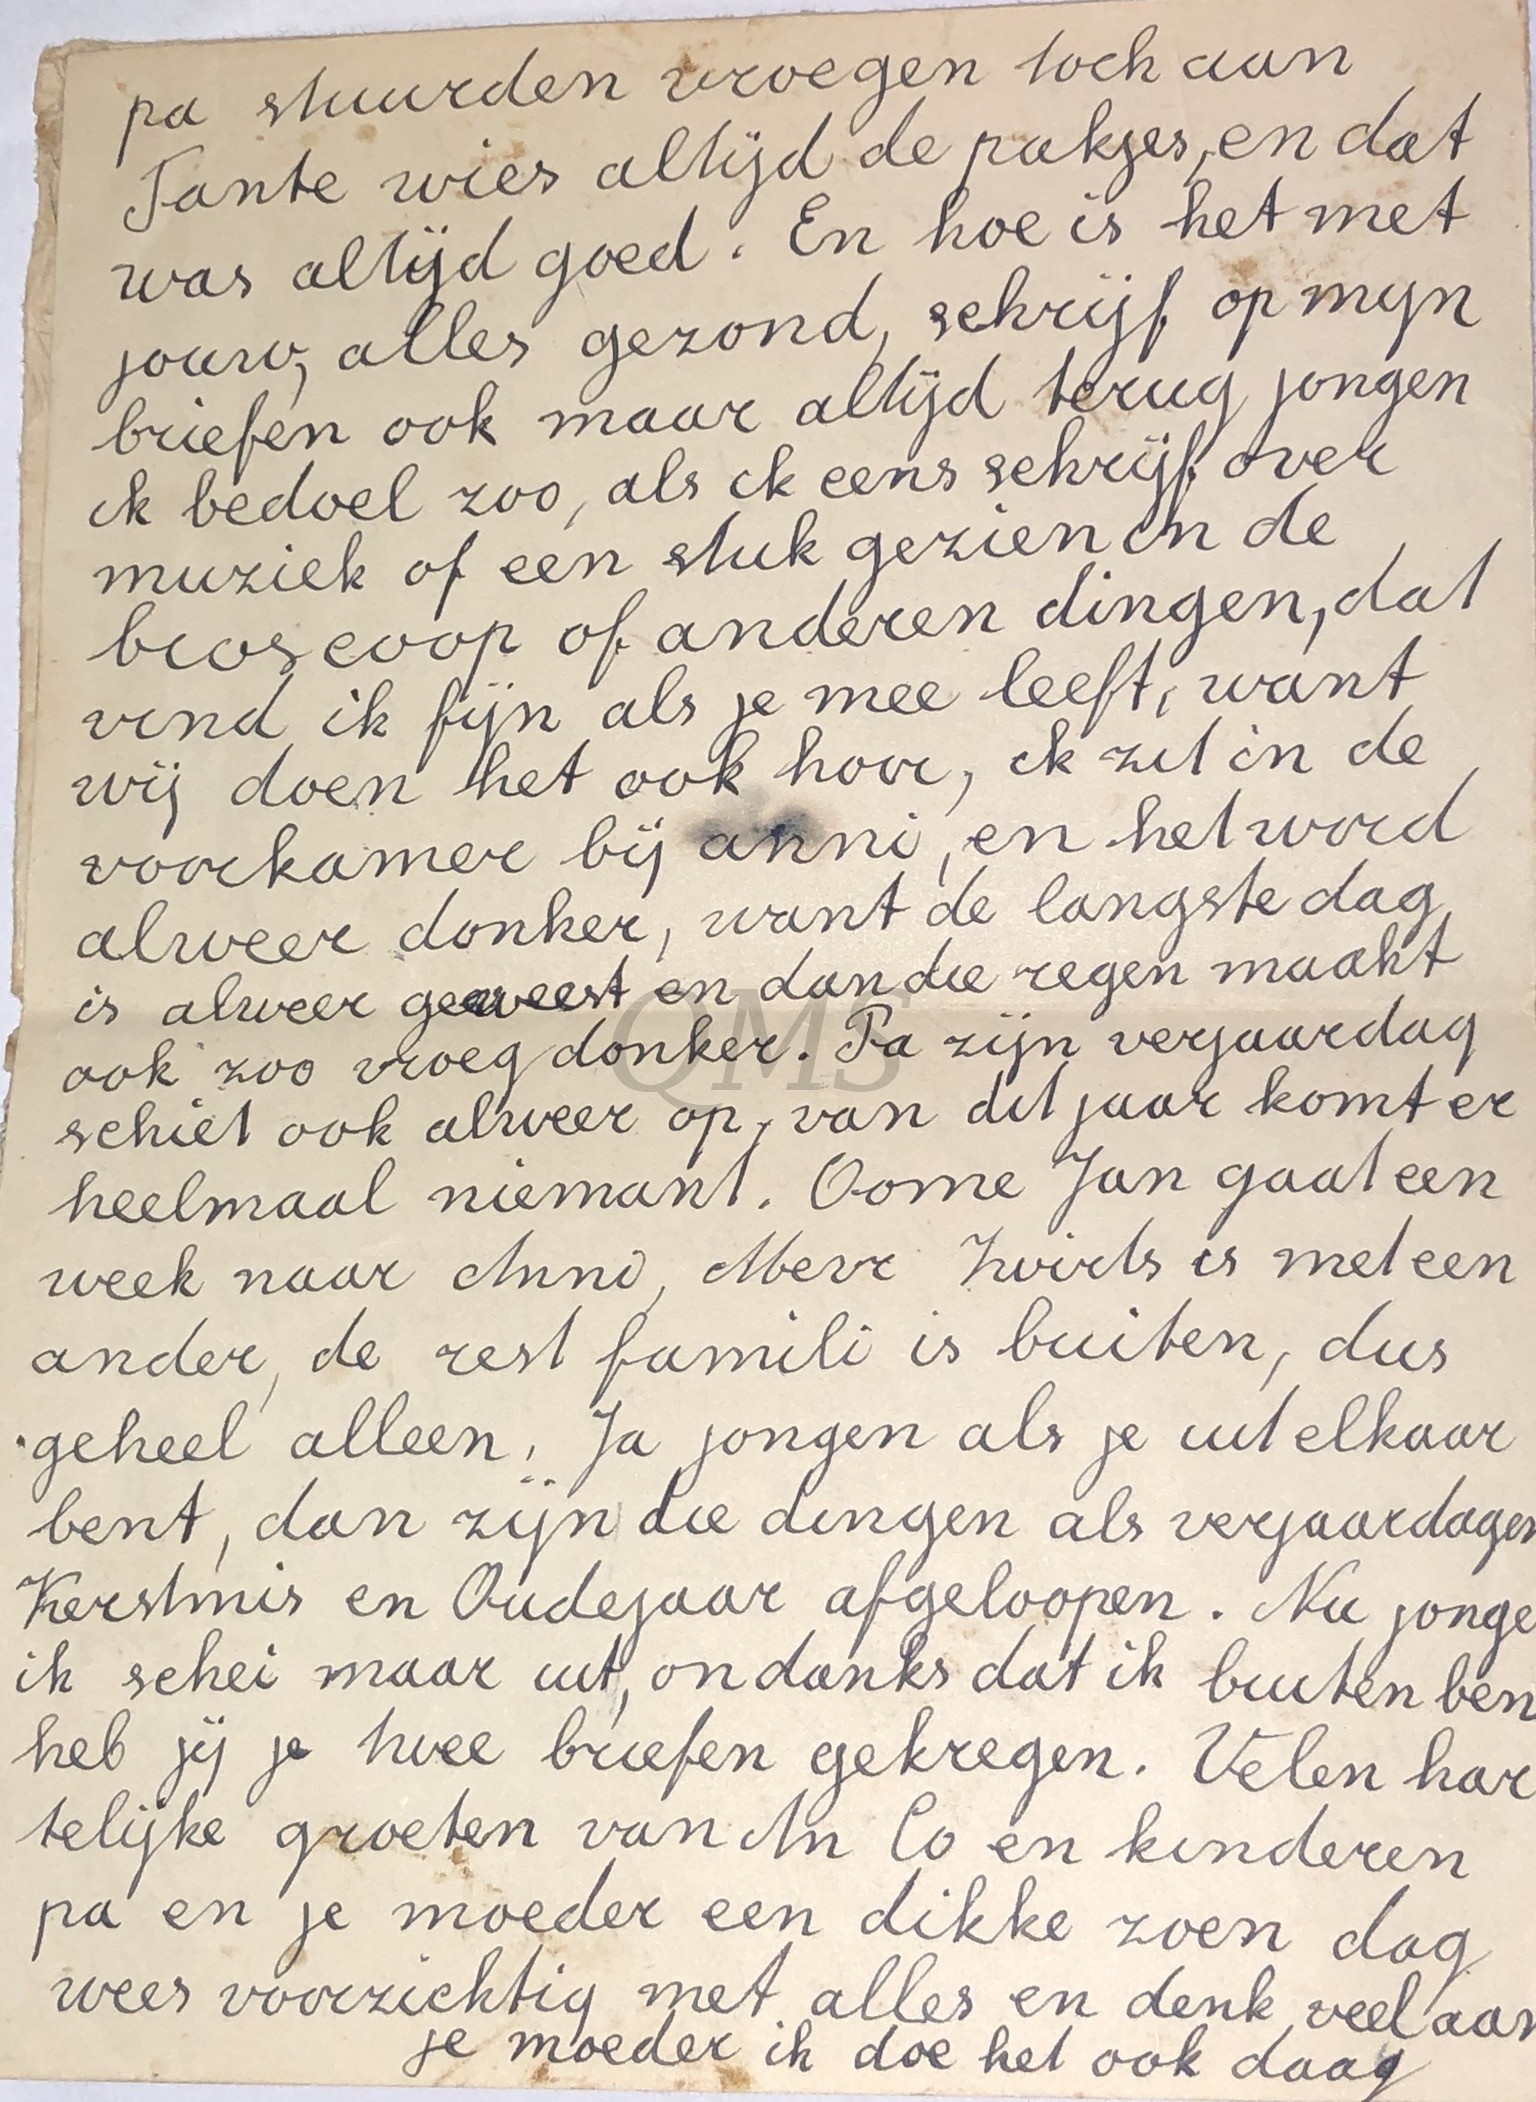 pa stuurden vroegen toch aan
Tante wies altijd de pakjes, en dat
was altijd goed. En hoe is het met
jouw, alles gezond, schrijf op mijn
briefen ook maar altijd terug jongen
ik bedoel zoo, als ik eens schrijf over
muziek of een stuk gezien in de
bioscoop of anderen dingen, dat
vind ik fijn als je mee leeft, want
wij doen het ook hoor, ik zit in de
voorkamer bij anni, en het word
alweer donker, want de langste dag
is alweer geweest en dan die regen maakt
ook zoo vroeg donker. Pa zijn verjaardag
schiet ook alweer op, van dit jaar komt er
heelmaal niemant. Oome Jan gaat een
week naar Anni, Mevr is met een
ander, de rest famili is buiten, dus
geheel alleen. Ja jongen als je uit elkaar
bent, dan zijn die dingen als verjaardagen
Kerstmis en Oudejaar afgeloopen. Nu jonge
ik schei maar uit, ondanks dat ik buiten ben
heb jij je twee briefen gekregen. Velen har
telijke groeten van An Co en kinderen
pa en je moeder een dikke zoen dag
wees voorzichtig met alles en denk veel aan
je moeder ik doe het ook daag
QMS